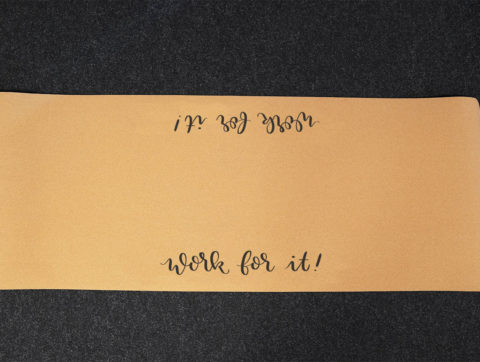 work for it!
work for it!